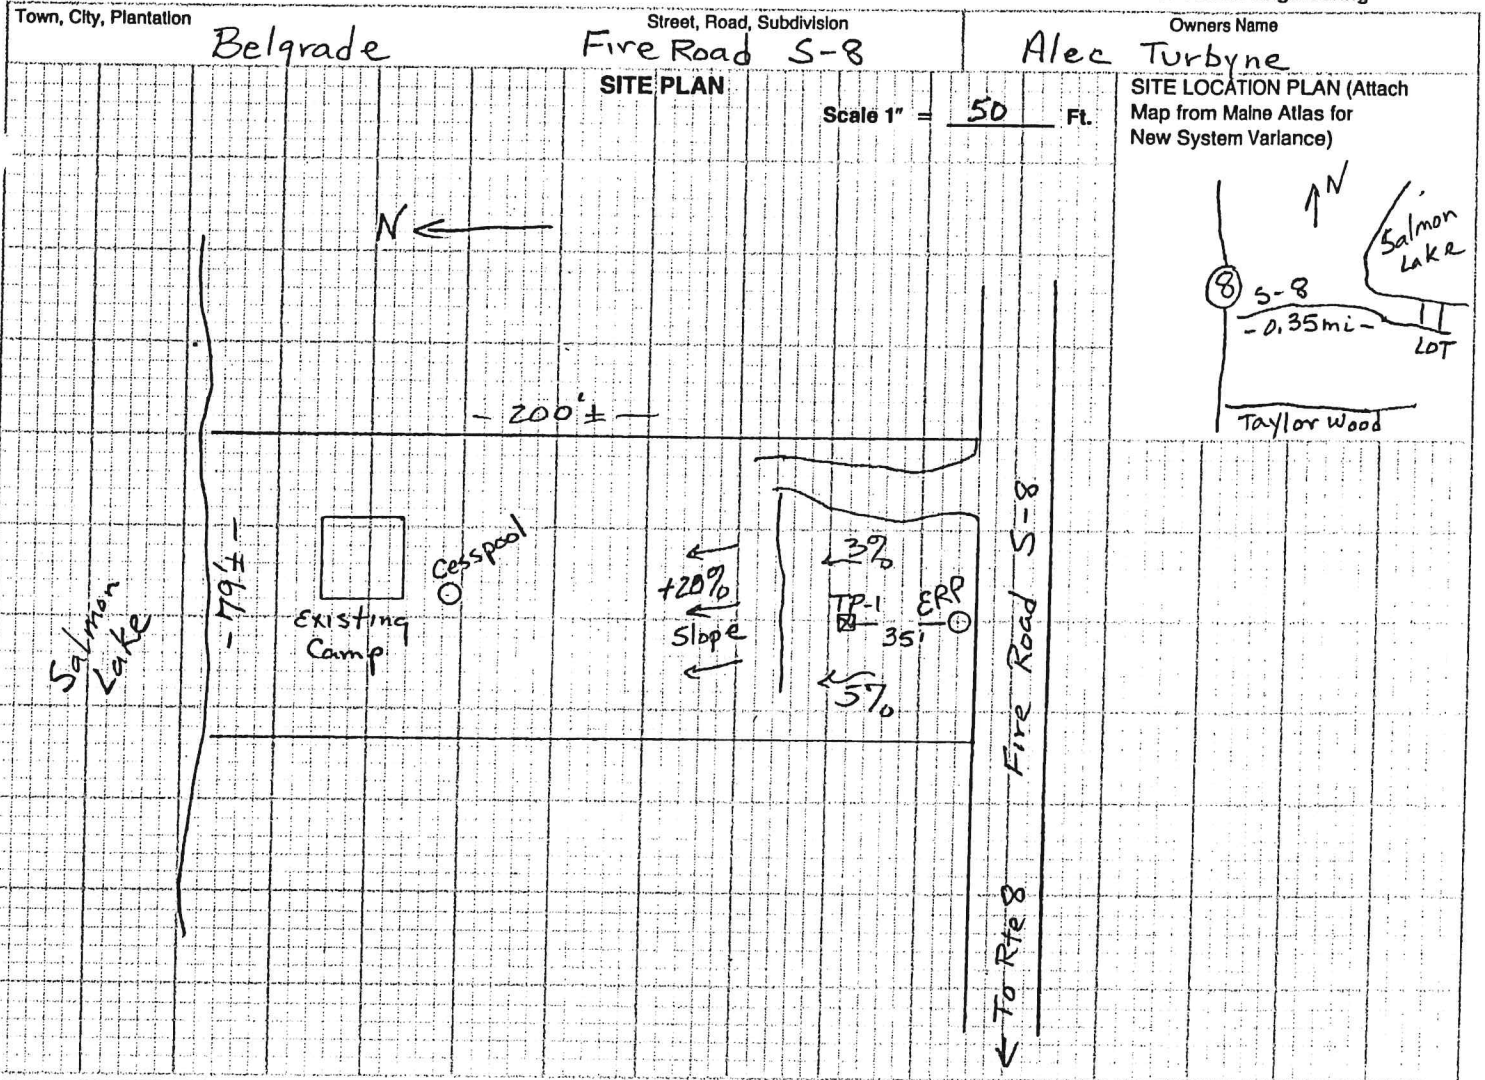 Town, City, Plantation
Street, Road, Subdivision
Owners Name
Belgrade
Fire Road S-8
Alec Turbyne
SITE PLAN
Scale 1" = 50 Ft.
SITE LOCATION PLAN (Attach
Map from Maine Atlas for
New System Variance)
N
Salmon
Lake
8
S-8
- 0.35mi -
LOT
Taylor Wood
N
- 200'± -
- 79'± -
Salmon
Lake
Existing
Camp
Cesspool
+20%
Slope
3%
TP-1
35'
ERP
5%
Fire Road S-8
To Rte 8